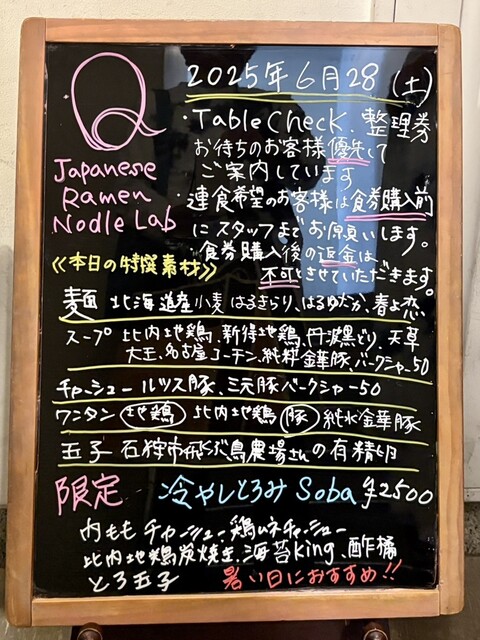 Q
Japanese
Ramen
Nodle Lab
2025年6月28(土)
・TableCheck、整理券
お待ちのお客様優先して
ご案内しています
・連食希望のお客様は食券購入前
にスタッフまでお願いします。
・食券購入後の返金は
不可とさせていただきます。
≪本日の特撰素材≫
麺 北海道産小麦 はるきらり、はるゆたか、春よ恋
スープ 比内地鶏、新得地鶏、丹波黒どり、天草
大王、名古屋コーチン、純粋金華豚、バークシャー50
チャーシュー ルッス豚、三元豚バークシャー50
ワンタン 地鶏 比内地鶏 豚 純水金華豚
玉子 石狩市飛ぶ鳥農場さんの有精卵
限定 冷やしとろみ Soba ¥2500
内ももチャーシュー、鶏ムネチャーシュー
比内地鶏炭焼き、海苔King、酢橘
とろ玉子 暑い日におすすめ!!